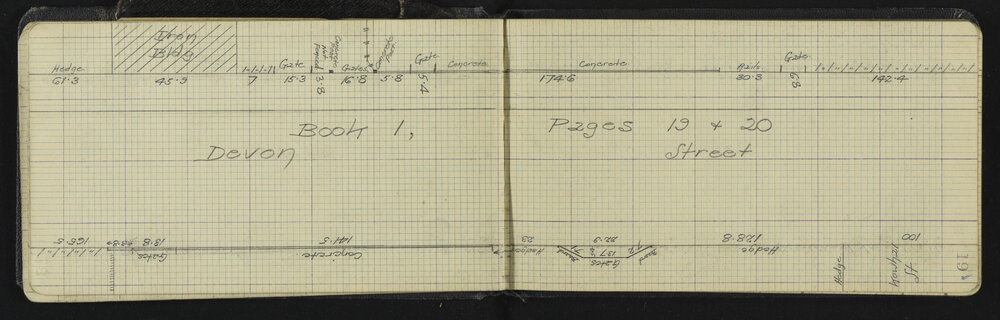 Iron
Bldg
Hedge
Gate
Gates
Gate
Concrete
Concrete
Rails
Gate
61.3
45.3
7
15.3
3.8
16.8
5.8
5.4
174.6
30.3
6.8
142.4
Book 1, Pages 19 & 20
Devon Street
165.5
13.8
Gates
144.5
Concrete.
23
Hedge
22.3
Board
Gates
Board
128.8
Hedge
100
Hedge
St
19